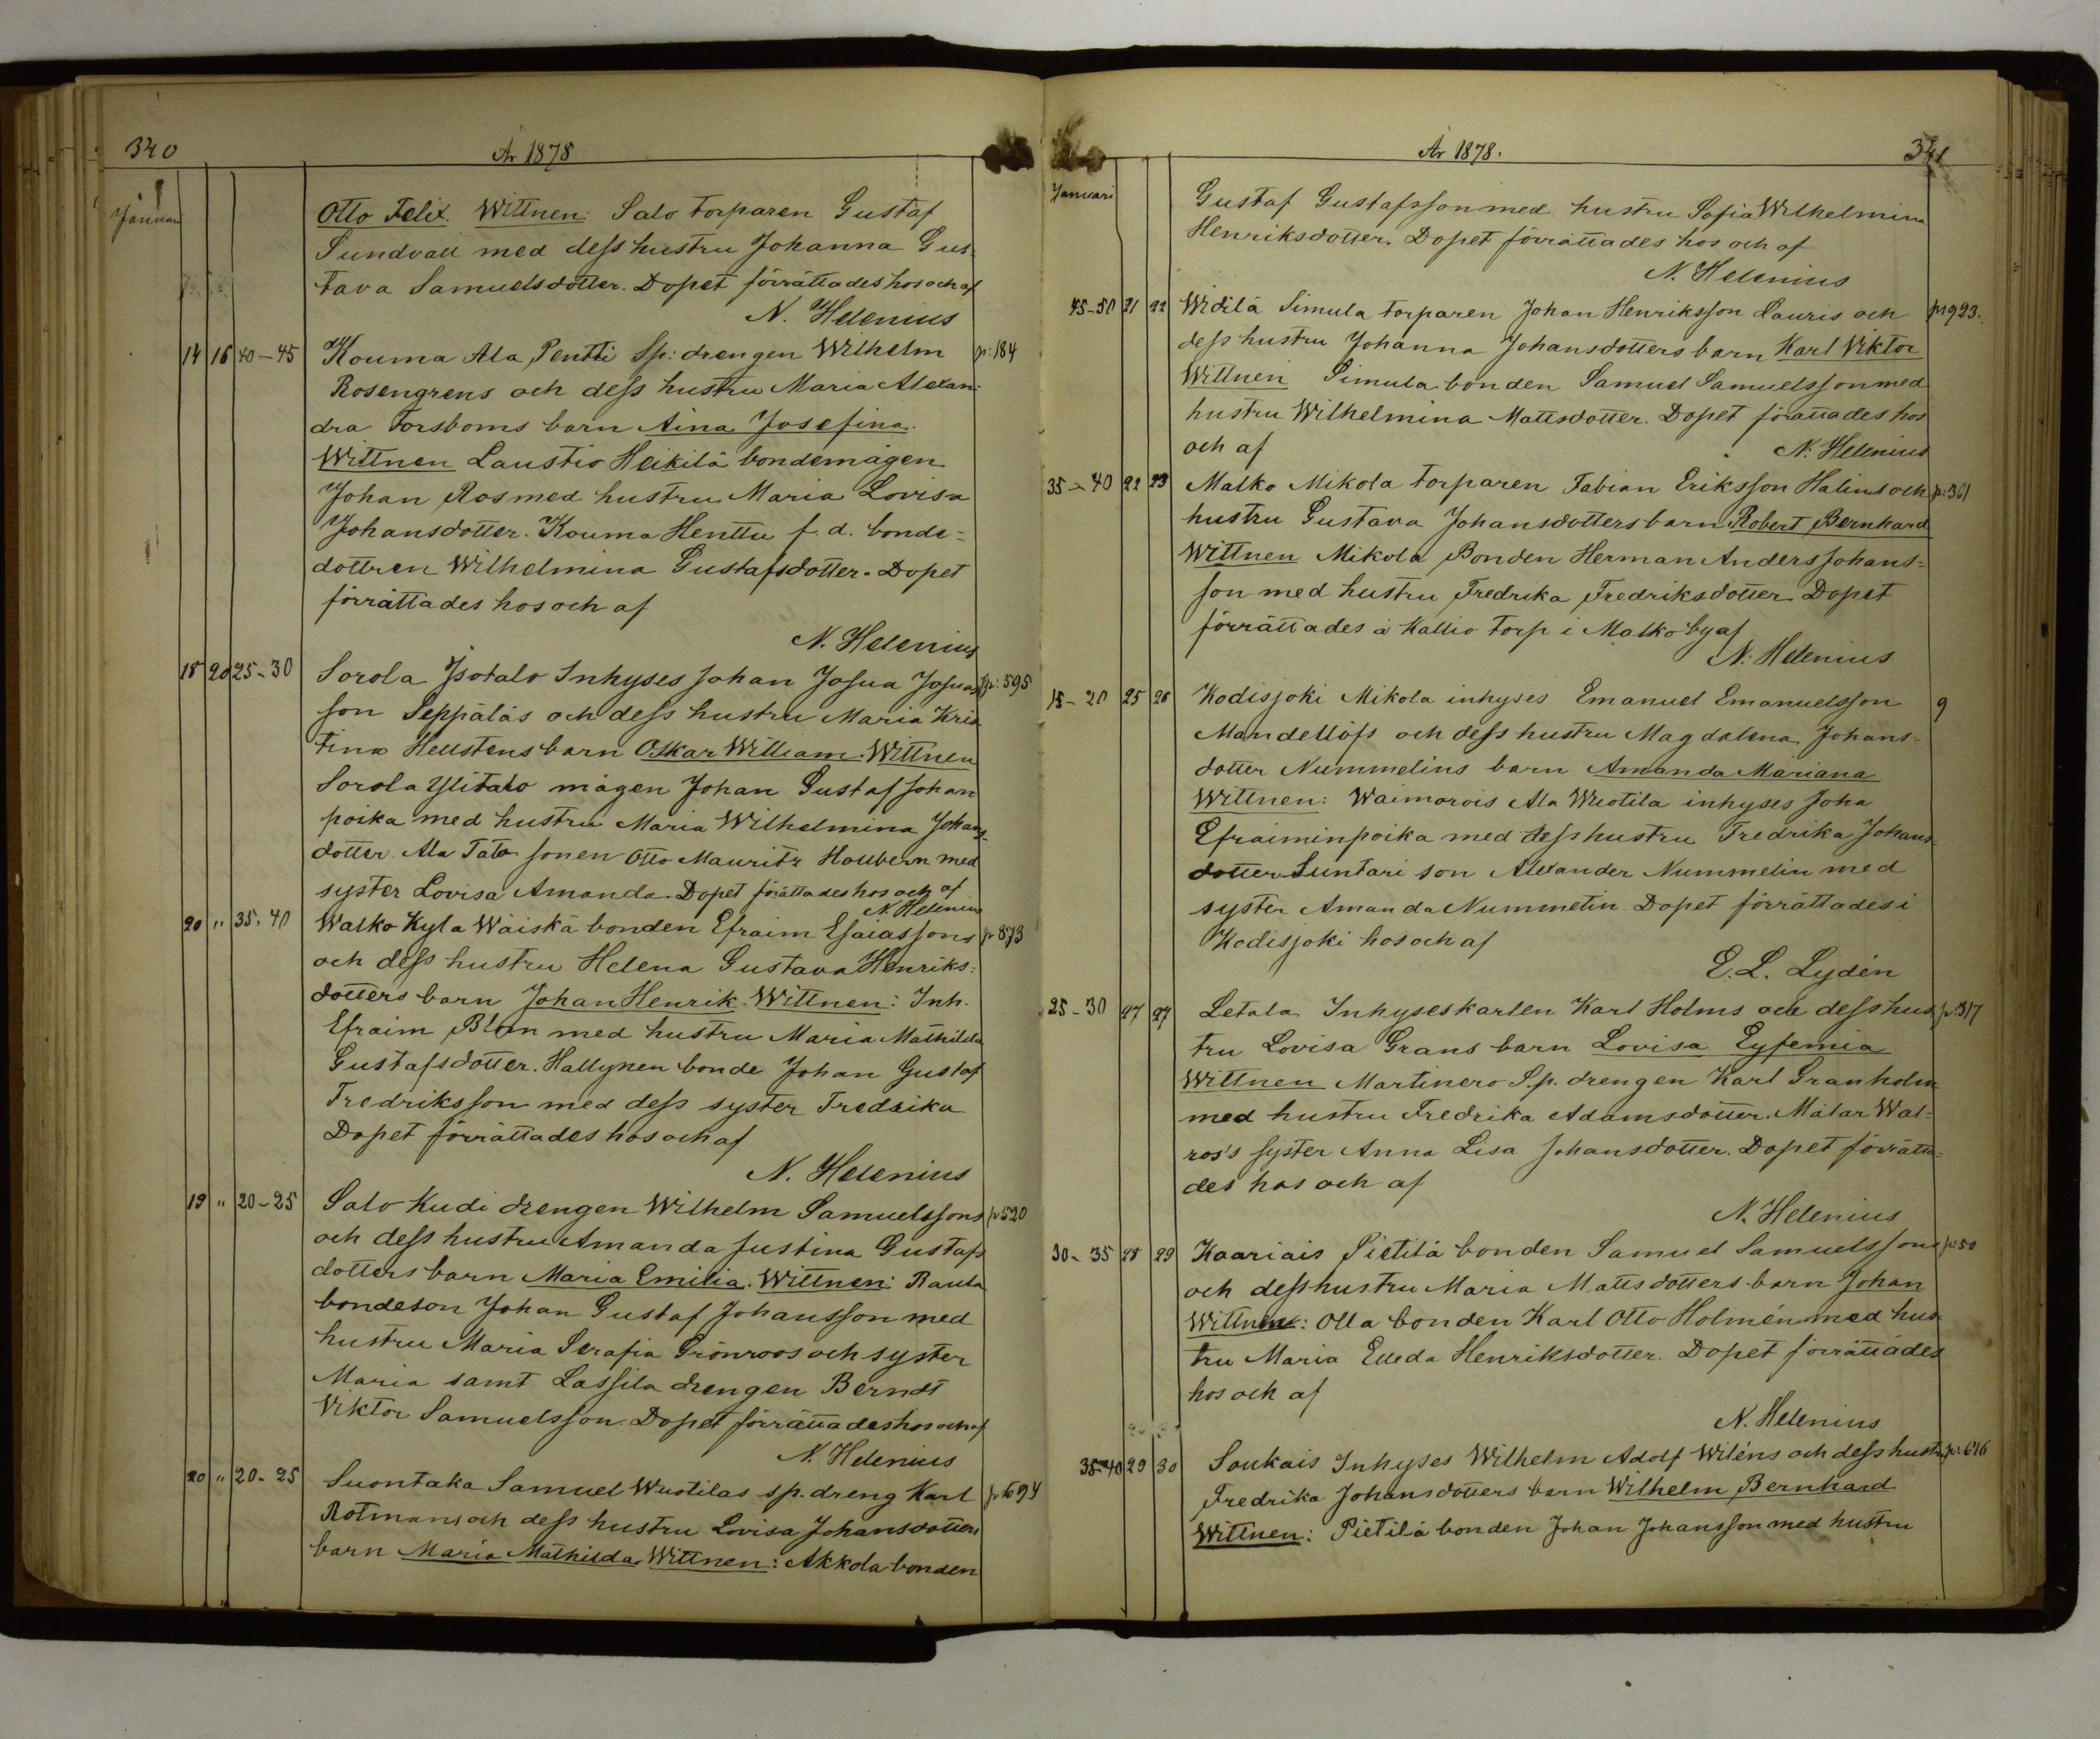 340
År 1878
Januari
Otto Felix. Wittnen: Salo torparen Gustaf
Sundvall med dess hustru Johanna Gus-
tava Samuelsdotter. Dopet förrättades hos och af
N. Helenius
14 16 40-45 Kouma Ala Pentti Sp: drengen Wilhelm p: 184
Rosengrens och dess hustru Maria Alexan-
dra Forsboms barn Aina Josefina.
Wittnen Laustio Heikilä bondemågen
Johan Ros med hustru Maria Lovisa
Johansdotter. Kouma Henttu f. d. bonde-
dottren Wilhelmina Gustafsdotter. Dopet
förrättades hos och af
N. Helenius
18 20 25-30 Sorola Isotalo Inhyses Johan Josua Josuas p: 595
son Seppäläs och dess hustru Maria Kris
tina Hellstens barn Oskar William. Wittnen
Sorola Ylitalo mågen Johan Gustaf Johan
poika med hustru Maria Wilhelmina Johans-
dotter. Ala Talo sonen Otto Mauritz Houbern med
syster Lovisa Amanda. Dopet förättades hos och af
N. Helenius
20 " 35-40 Walko Kyla Wäiskä bonden Efraim Esaiassons p 873
och dess hustru Helena Gustava Henriks-
dotters barn Johan Henrik. Wittnen: Inh.
Efraim Blom med hustru Maria Mathilda
Gustafsdotter. Hallynen bonde Johan Gustaf
Fredriksson med dess syster Fredrika
Dopet förrättades hos och af
N. Helenius
19 " 20-25 Salo Kudi drengen Wilhelm Samuelssons p 520
och dess hustru Amanda Justina Gustafs
dotters barn Maria Emilia. Wittnen: Raula
bondeson Johan Gustaf Johansson med
hustru Maria Serafia Grönroos och syster
Maria samt Lassila drengen Berndt
Viktor Samuelsson. Dopet förrättades hos och af
N. Helenius
20 " 20-25 Suontaka Samuel Wuotilas sp. dreng Karl p 694
Rotmans och dess hustru Lovisa Johansdotters
barn Maria Mathilda Wittnen: Akkola bonden
År 1878.
341
Januari
Gustaf Gustafsson med hustru Sofia Wilhelmina
Henriksdotter. Dopet förrättades hos och af
N. Helenius
45-50 21 22 Widilä Simula torparen Johan Henriksson Lauris och p: 923.
dess hustru Johanna Johansdotters barn Karl Viktor
Wittnen Simula bonden Samuel Samuelsson med
hustru Wilhelmina Mattsdotter. Dopet förättades hos
och af N. Helenius
35-40 22 23 Malko Mikola torparen Fabian Eriksson Halins och p: 361
hustru Gustava Johansdotters barn Robert Bernhard
Wittnen Mikola Bonden Herman Anders Johans-
son med hustru Fredrika Fredriksdotter. Dopet
förrättades å Kallio torp i Malko by af
N. Helenius
15-20 25 26 Kodisjoki Mikola inhyses Emanuel Emanuelsson 9
Mandellöfs och dess hustru Magdalena Johans-
dotter Nummelins barn Amanda Mariana
Wittnen: Waimorois Ala Wuotila inhyses Joha
Efraiminpoika med dess hustru Fredrika Johans-
dotter Suntari son Alexander Nummelin med
syster Amanda Nummelin. Dopet förrättades i
Kodisjoki hos och af
E. L. Lydén
25-30 27 27 Letala Inhyseskarlen Karl Holms och dess hus p: 317
tru Lovisa Grans barn Lovisa Eyfemia
Wittnen Martinero S.p. drengen Karl Granholm
med hustru Fredrika Adamsdotter. Målar Wal-
ros's syster Anna Lisa Johansdotter. Dopet förrätta-
des hos och af
N. Helenius
30-35 28 29 Kaariais Pietilä bonden Samuel Samuelssons p: 50
och dess hustru Maria Mattsdotters barn Johan
Wittnen: Olla bonden Karl Otto Holmén med hus-
tru Maria Elleda Henriksdotter. Dopet förrättades
hos och af
N. Helenius
35-40 29 30 Soukais Inhyses Wilhelm Adolf Wiléns och dess hustru p: 616
Fredrika Johansdotters barn Wilhelm Bernhard
Wittnen: Pietilä bonden Johan Johansson med hustru